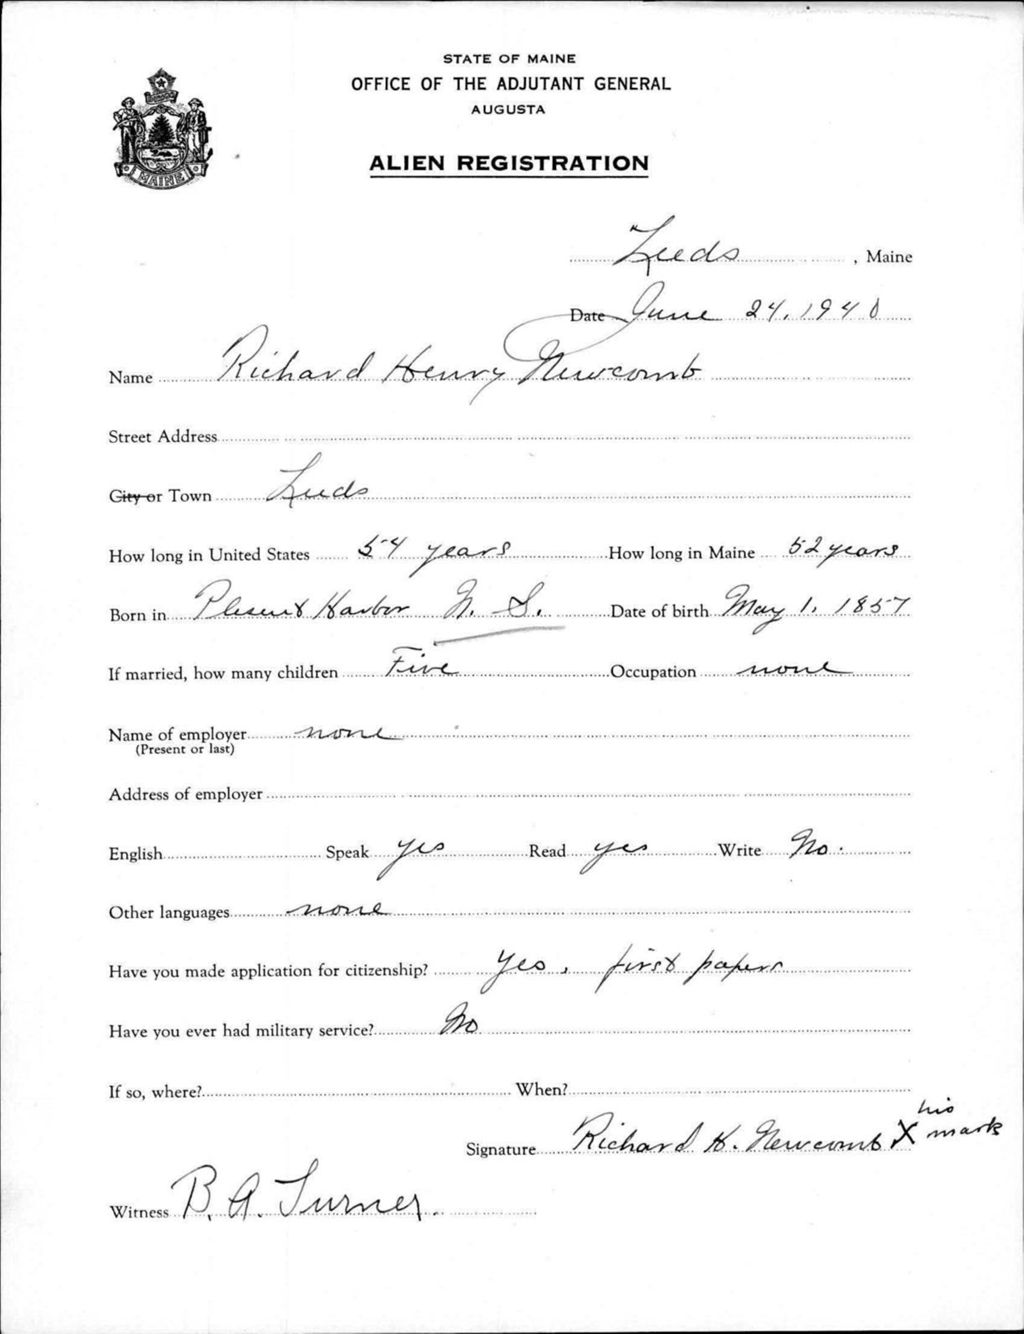 STATE OF MAINE
OFFICE OF THE ADJUTANT GENERAL
AUGUSTA
MAINE
ALIEN REGISTRATION
Leeds, Maine
Date June 24, 1940
Name Richard Henry Newcomb
Street Address
City or Town Leeds
How long in United States 54 years How long in Maine 52 years
Born in Plesent Harbor N. S. Date of birth May 1, 1857
If married, how many children Five Occupation none
Name of employer none
(Present or last)
Address of employer
English Speak yes Read yes Write No.
Other languages none
Have you made application for citizenship? Yes, first papers
Have you ever had military service? No
If so, where? When?
his
Signature Richard H. Newcomb X mark
Witness B. A. Turner.